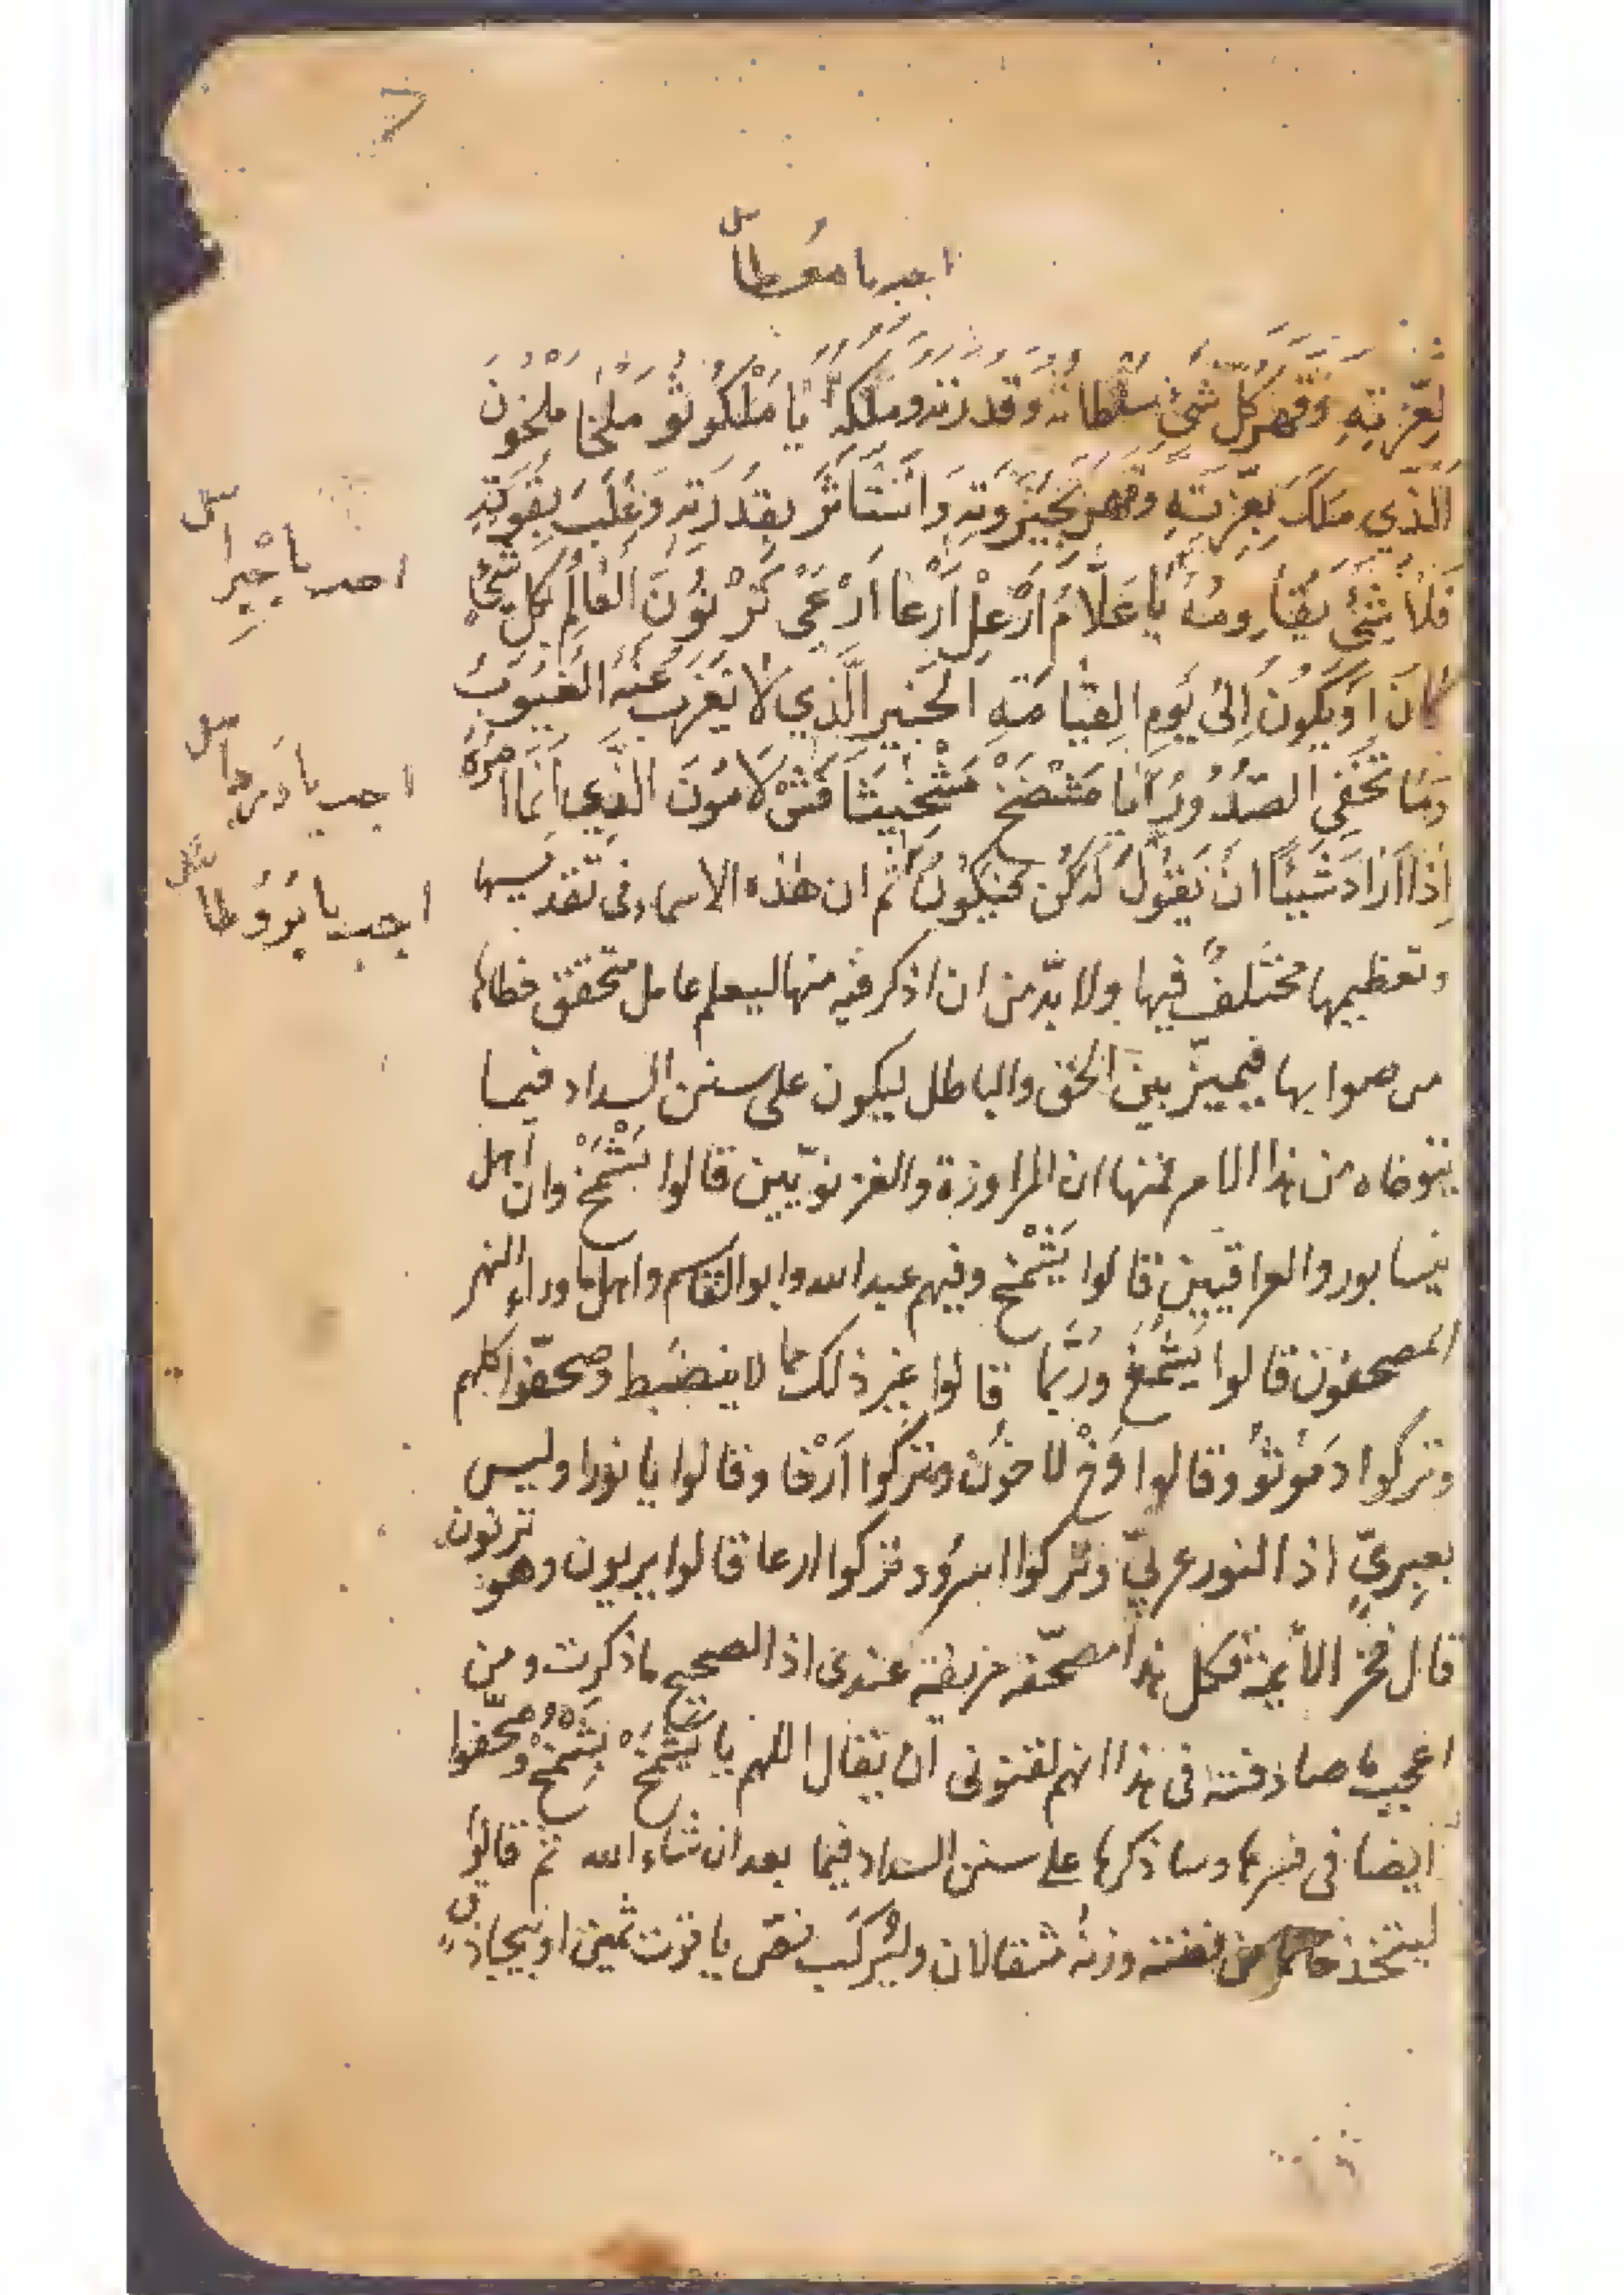 اجب يا معطائيل
لِعِزّتِهِ وَقَهَرَ كُلَّ شَيْءٍ سُلْطَانُهُ وَقُدْرَتُهُ وَمُلْكُهُ يَا مَلْكُوثُو مَلْخَا مَلْخُونَ
اَلَّذِي مَلَكَ بِعِزَّتِهِ وَقَهَرَ بِجَبَرُوتِهِ بِقُدْرَتِهِ وَغَلَبَ بِقُوَّتِهِ
فَلَا شَيْءَ يُقَاوِمُهُ يَا عَلَّامُ اَرْعِلْ اَرْعَا اَرْعَىْ الْعَالِمِ كُلَّ شَيْءٍ
كَانَ اَوْ يَكُونُ اِلَى يَوْمِ الْقِيَامَةِ الْخَبِيرِ الَّذِي لَا يَعْزُبُ عَنْهُ الْغُيُوبُ
وَمَا تُخْفِي الصُّدُورُ يَا الَّذِي اِنَّمَا اَمْرُهُ
اِذَا اَرَادَ شَيْئًا اَنْ يَقُولَ لَهُ كُنْ فَيَكُونُ ثم ان هذه الاسماء في تقديسها
وتعظيمها مختلفٌ فيها ولا بدّ من ان اذكر فيه منها ليعلم عامل متحقق خطاءها
من صوابها فيميّز بين الحق والباطل ليكون على سنن السداد فيما
يتوخاه من هذا الامر فمنها ان المراوزة والغزنويّين قالوا يَشْمَخْ وان اهل
نيسابور والعراقيين قالوا يَشْمَخ وفيهم عبد الله وابو القاسم واهل ما وراء النهر
المصحفون قالوا يَشْمَعْ وربّما قالوا غير ذلك مما لا ينضبط وصحّفوا كلهم
وتركوا دَمُوثُو وقالوا لاخون وتركوا اَرْقا وقالوا يا نورا وليس
بعبريّ اذ النور عربيّ وتركوا وتركوا ارعا قالوا يريون وهو ترنون
قال فخر الائمة فكل هذا مصحّفة مزيفة عندى اذ الصحيح ما ذكرت ومن
اعجب ما صادفته فى هذا انهم لقنونى ان يقال اللهم يا يَشْمَخْ يَشْمَخْ وصحّفوا
ايضا فى وساذكرها على سنن السداد فيما بعد ان شاء الله ثم قالوا
ليتخذ خاتما من فضة وزنه مثقالان وليركّب فصّ ياقوت ثمين او بيجاذق
اجب يا جبرائيل
اجب يا دردائيل
اجب يا نوروطائيل